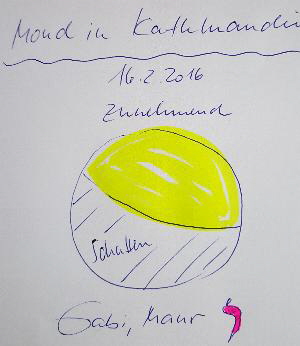 Mond in Kathmandu
16.2.2016
Zunehmend
Schatten
Gabi, Maur